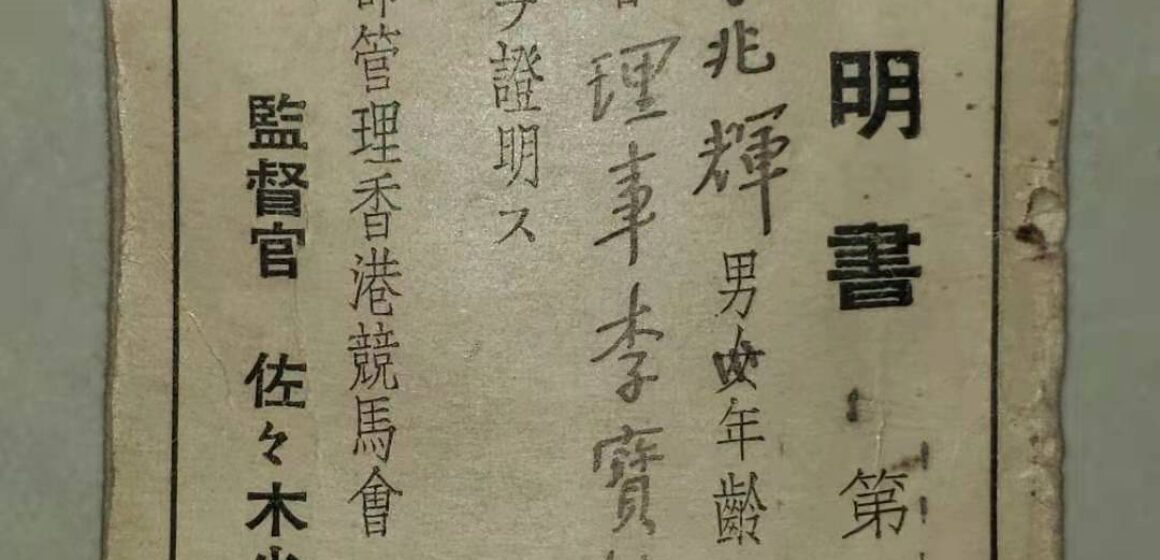 明書 第
兆輝 男女年齡
理事李寶
證明ス
管理香港競馬會
監督官 佐々木